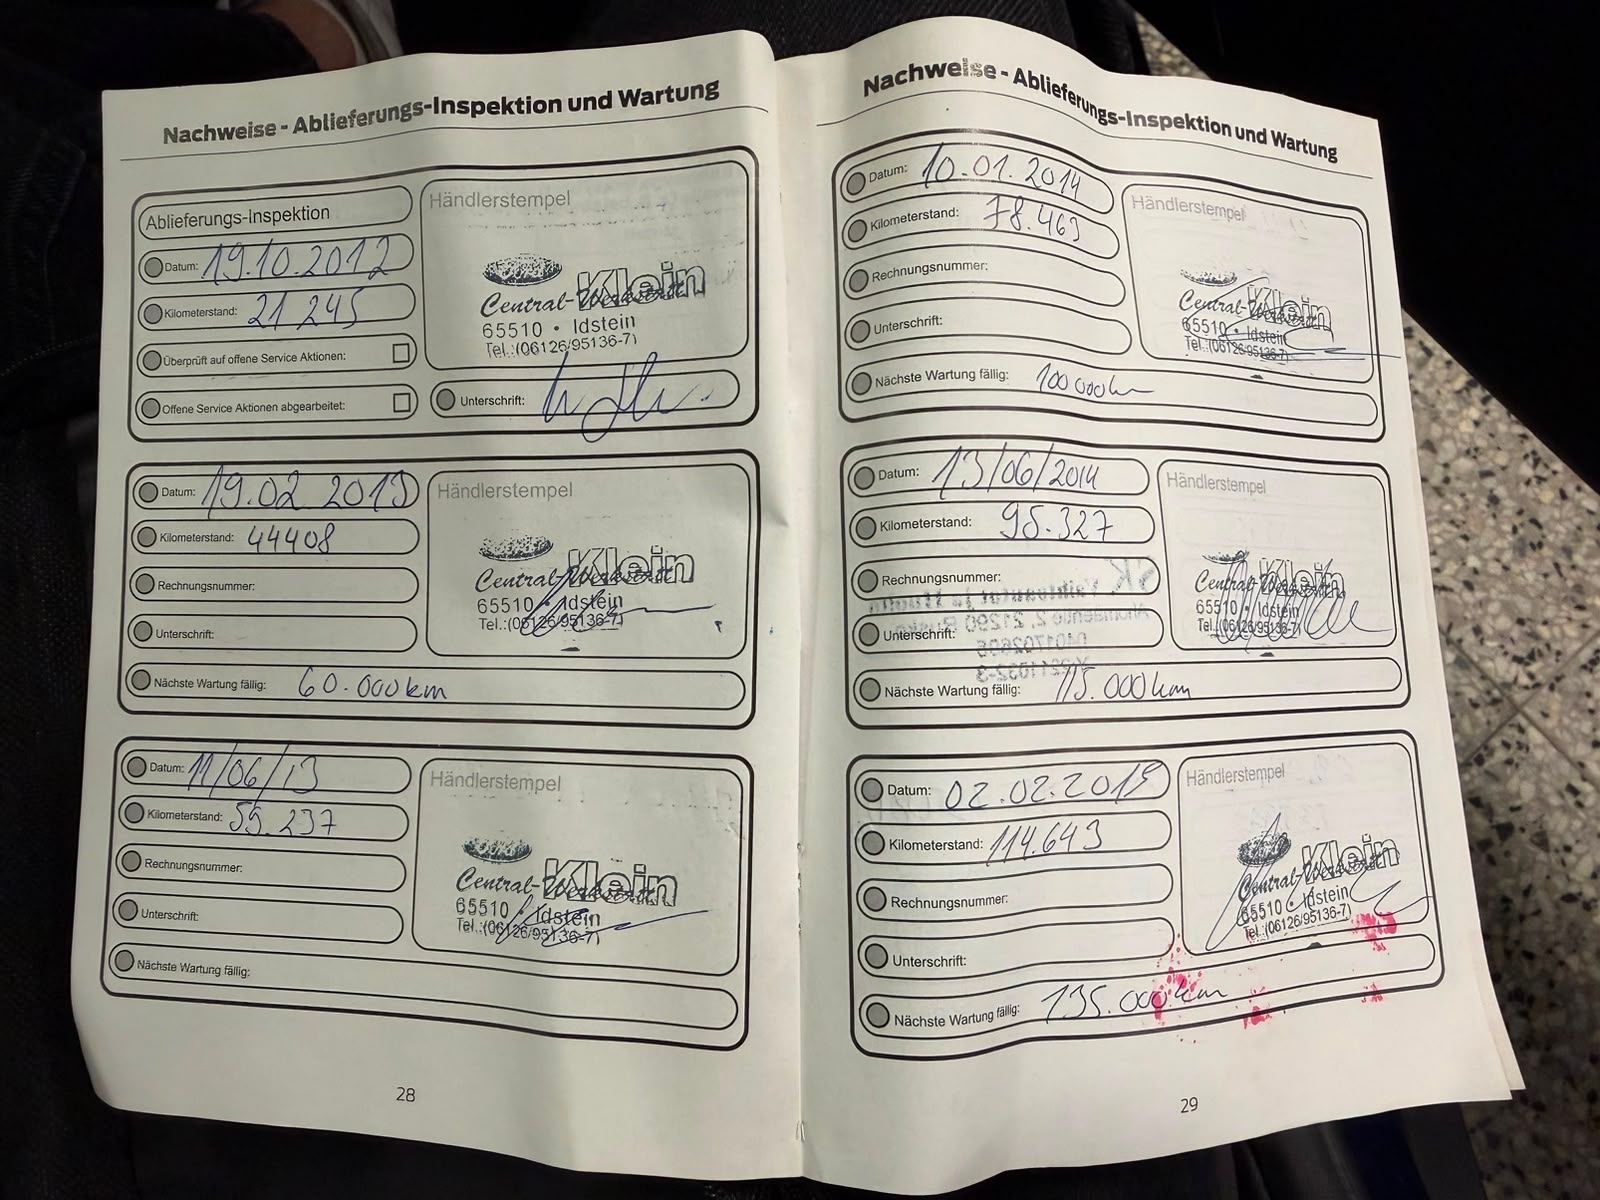 Nachweise - Ablieferungs-Inspektion und Wartung
Ablieferungs-Inspektion
Datum: 19.10.2012
Kilometerstand: 21 245
Überprüft auf offene Service Aktionen:
Offene Service Aktionen abgearbeitet:
Händlerstempel
Klein
Central-Werkstatt
65510 • Idstein
Tel.:(06126/95136-7)
Unterschrift:
Datum: 19.02 2013
Kilometerstand: 44408
Rechnungsnummer:
Unterschrift:
Nächste Wartung fällig: 60.000km
Händlerstempel
Klein
Central-Werkstatt
65510 • Idstein
Tel.:(06126/95136-7)
Datum: 11/06/13
Kilometerstand: 55.237
Rechnungsnummer:
Unterschrift:
Nächste Wartung fällig:
Händlerstempel
Klein
Central-Werkstatt
65510 • Idstein
Tel.:(06126/95136-7)
28
Nachweise - Ablieferungs-Inspektion und Wartung
Datum: 10.01.2014
Kilometerstand: 78.463
Rechnungsnummer:
Unterschrift:
Nächste Wartung fällig: 100 000km
Händlerstempel
Klein
Central-Werkstatt
65510 • Idstein
Tel.:(06126/95136-7)
Datum: 13/06/2014
Kilometerstand: 95.327
Rechnungsnummer:
Unterschrift:
Nächste Wartung fällig: 115.000km
Händlerstempel
Klein
Central-Werkstatt
65510 • Idstein
Tel.:(06126/95136-7)
Datum: 02.02.2015
Kilometerstand: 114.643
Rechnungsnummer:
Unterschrift:
Nächste Wartung fällig: 135.000km
Händlerstempel
Klein
Central-Werkstatt
65510 • Idstein
Tel.:(06126/95136-7)
29